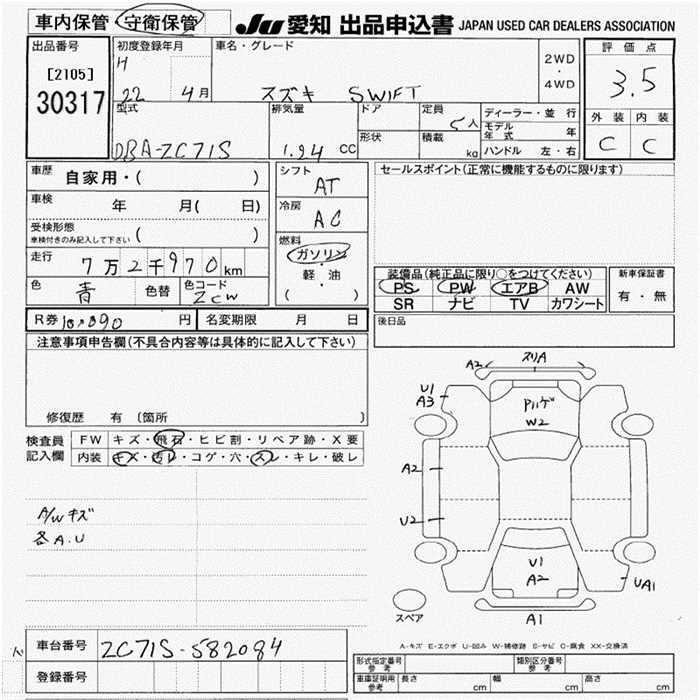 車内保管 守衛保管 JU 愛知 出品申込書 JAPAN USED CAR DEALERS ASSOCIATION
出品番号
[2105]
30317
初度登録年月
H
22 4月
車名・グレード
スズキ SWIFT
2WD
・
4WD
評価点
3.5
外装 内装
C C
型式
DBA-ZC71S
排気量
1.24 CC
ドア
形状
定員
5人
積載
kg
ディーラー・並行
モデル年式 年
ハンドル 左・右
車歴
自家用・( )
車検 年 月( 日)
受検形態
車検付きのみ記入して下さい ( )
走行
7万2千970km
色
青
色替
色コード
ZCW
シフト
AT
冷房
AC
燃料
ガソリン
・
軽・油
( )
セールスポイント(正常に機能するものに限ります)
装備品(純正品に限り○をつけてください)
PS PW エアB AW
SR ナビ TV カワシート
新車保証書
有・無
後日品
R券 10,890 円 名変期限 月 日
注意事項申告欄(不具合内容等は具体的に記入して下さい)
修復歴 有 〔箇所 〕
検査員
記入欄
FW キズ・飛石・ヒビ割・リペア跡・X要
内装 キズ・汚レ・コゲ・穴・スレ・キレ・破レ
A/Wキズ
各A.U
A2 スリA
U1
A3
W2
A2
U2
U1
A2
UA1
A1
スペア
A-キズ E-エクボ U-凹み W-補修跡 S-サビ C-腐食 XX-交換済
車台番号 ZC71S-582084
登録番号
形式指定番号
参考
類別区分番号
参考
車庫証明用
参考
長さ cm 幅 cm 高さ cm